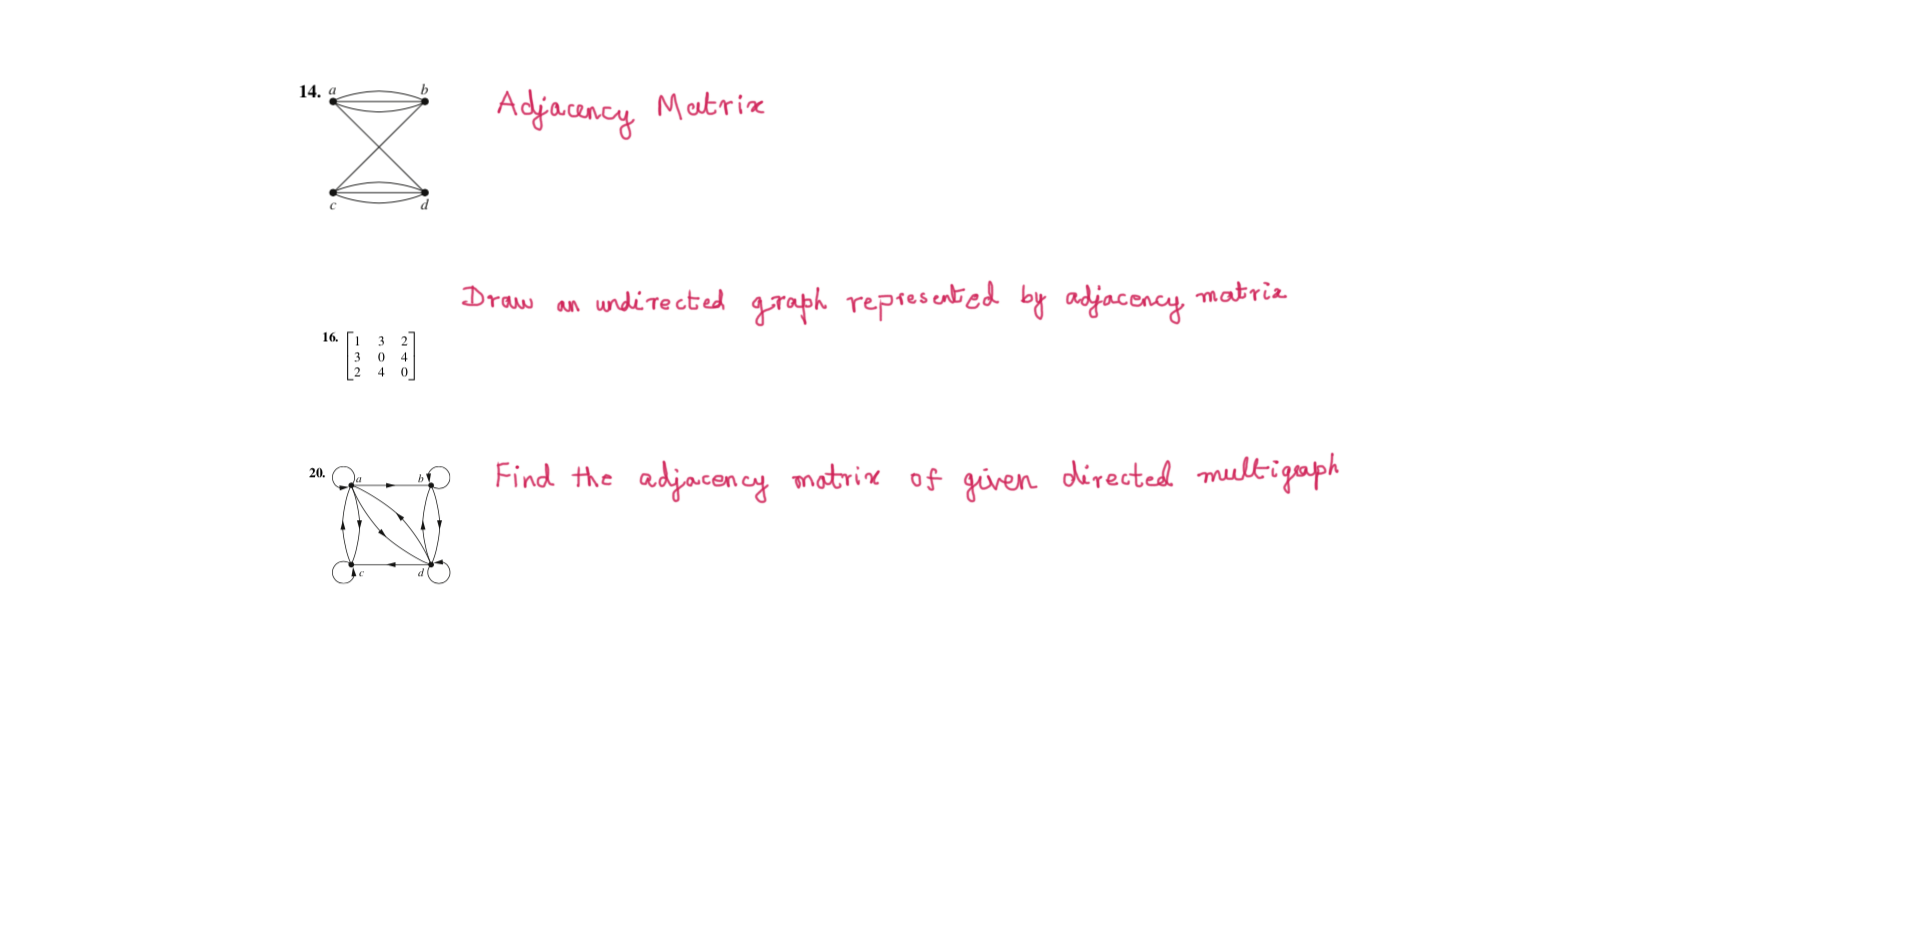 14. a b Adjacency Matrix
c d
Draw an undirected graph represented by adjacency matrix
16. 1 3 2
3 0 4
2 4 0
20. a b Find the adjacency matrix of given directed multigraph
c d